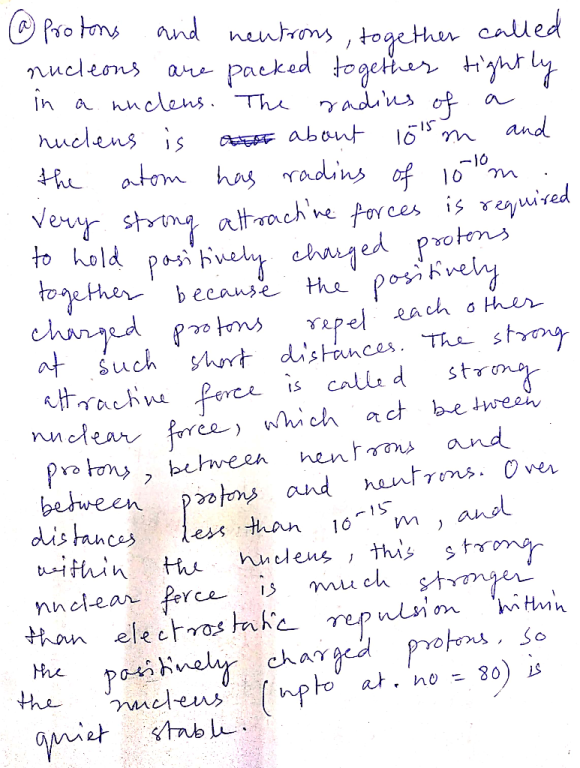 ⓐ Protons and neutrons, together called
nucleons are packed together tightly
in a nucleus. The radius of a
nucleus is about 10⁻¹⁵ m and
the atom has radius of 10⁻¹⁰ m.
Very strong attractive forces is required
to hold positively charged protons
together because the positively
charged protons repel each other
at such short distances. The strong
attractive force is called strong
nuclear force, which act between
protons, between neutrons and
between protons and neutrons. Over
distances less than 10⁻¹⁵ m, and
within the nucleus, this strong
nuclear force is much stronger
than electrostatic repulsion within
the positively charged protons. So
the nucleus (upto at. no = 80) is
quiet stable.